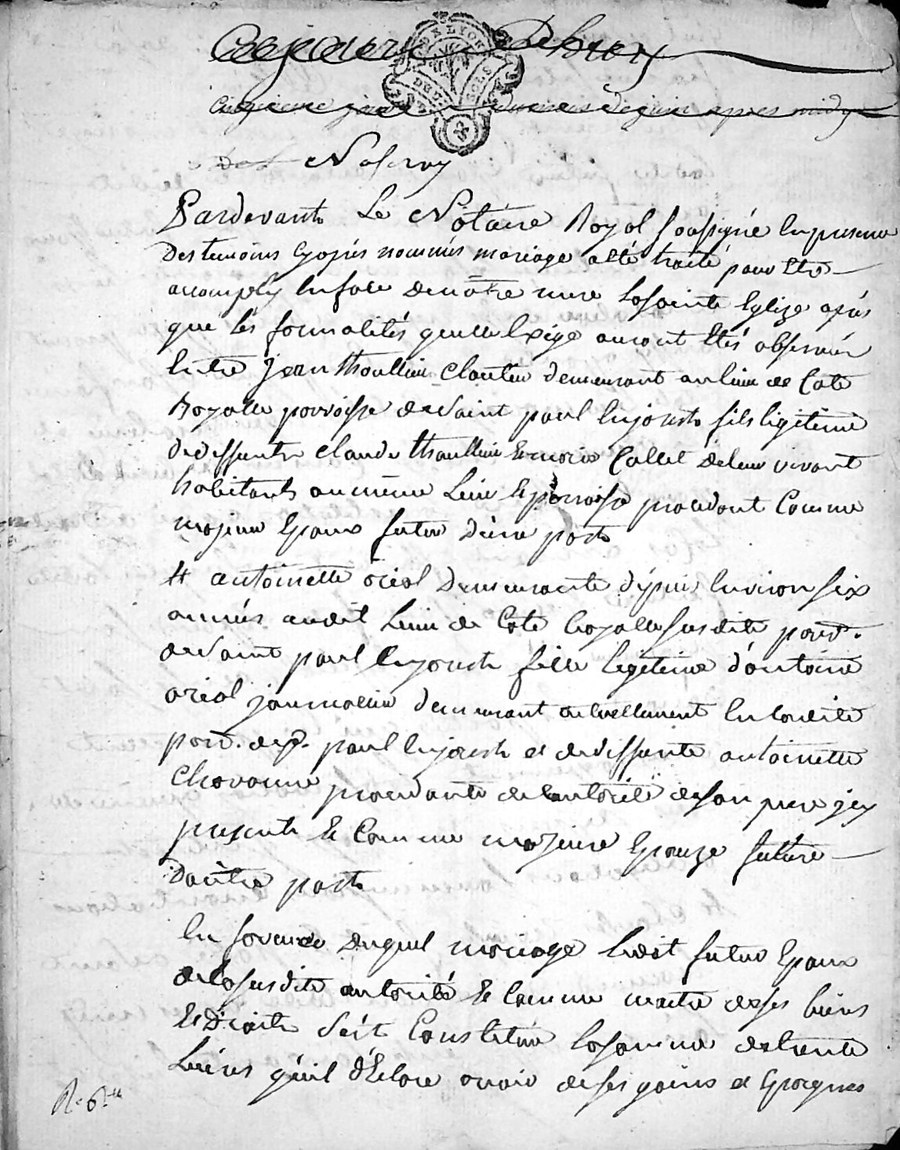 LYON
DEUX SOLS
cinquieme jour
de juin après midy
Pardevant Le Notaire Royal Soussigné En presence
Des temoins Cy après nommés mariage a été traité pour Etre
accomply En face De nôtre mere La Sainte Eglize après
que lés formalités quelle Exige auront Etés observées
Entre Jean Thoullieu demeurant au lieu de Cote
Royalle parroisse de Saint paul En jarest fils legitime
de deffunts Claude Thoullieu Et marie Collet De leur vivant
habitants au même Lieu Et parroisse procedant Comme
majeur Epoux futur D'une part
Et antoinette oriol Demeurante dépuis Environ six
années audit Lieu de Cote Royalle susdite parr.
de Saint paul En jarest fille legitime d'antoine
oriol journalier demeurant actuellement En ladite
parr. de St. paul En jarest et de deffunte antoinette
Chovanne procedante de l'autorité de son pere icy
present Et Comme majeure Epouze future
D'autre part
En faveur Duquel mariage Ledit futur Epoux
de la susdite autorité Et Comme maitre de sés biens
Et Droits S'est Constitué la somme de trente
Livres qu'il déclare avoir de ses gains et Epargnes
R. 6